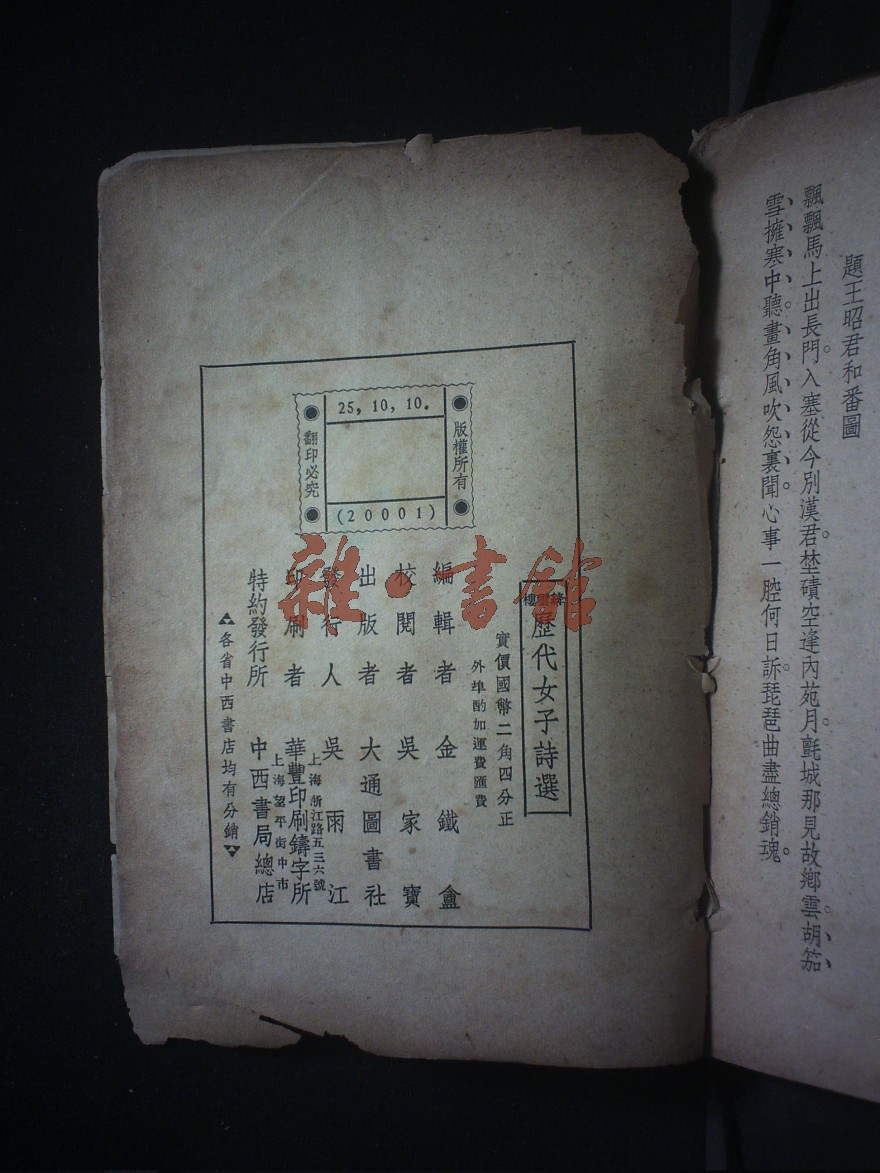 題王昭君和番圖
飄飄馬上出長門。入塞從今別漢君。埜磧空逢內苑月。氈城那見故鄉雲。胡笳
雪擁寒中聽。畫角風吹怨裏聞。心事一腔何日訴。琵琶曲盡總銷魂。
絳雪樓
歷代女子詩選
實價國幣二角四分正
外埠酌加運費匯費
版權所有
25, 10, 10.
(20001)
翻印必究
編輯者 金鐵盦
校閱者 吳家寶
出版者 大通圖書社
發行人 吳雨江
上海浙江路五三六號
印刷者 華豐印刷鑄字所
上海望平街中市
特約發行所 中西書局總店
各省中西書店均有分銷
雜·書館